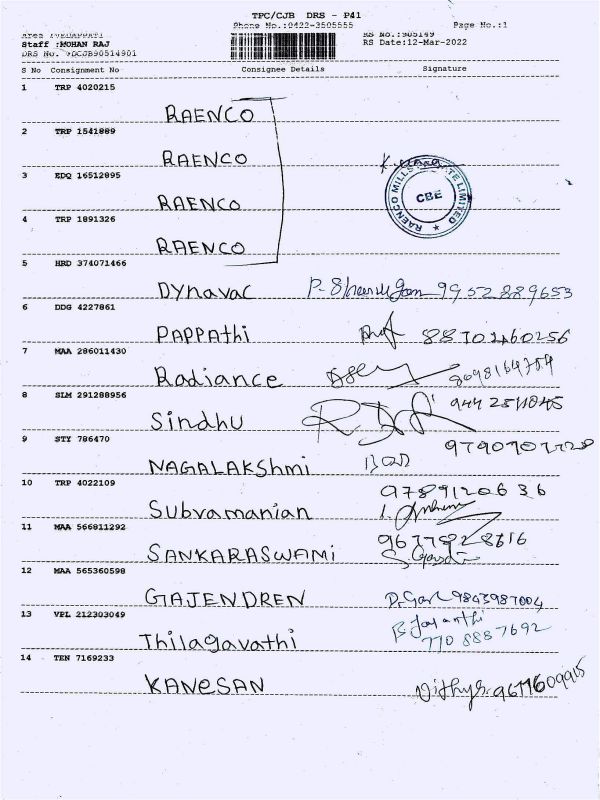 TPC/CJB DRS - P41
Phone No.:0422-3505555 Page No.:1
Area :VEDAPPATI RS No.:905149
Staff :MOHAN RAJ RS Date:12-Mar-2022
DRS No. :DCJB90514901
S No Consignment No Consignee Details Signature
1 TRP 4020215
RAENCO
2 TRP 1541889
RAENCO
3 EDQ 16512895
RAENCO
RAENCO MILLS LIMITED
CBE
4 TRP 1891326
RAENCO
5 HRD 374071466
Dynavac 9952889653
6 DDG 4227861
PAPPAthi 8870460256
7 MAA 286011430
Radiance
8 SLM 291288956
Sindhu
9 STY 786470
NAGALAKShmi
10 TRP 4022109
Subramanian
11 MAA 566811292
SANKARASWAMi
12 MAA 565360598
GAJENDREN 9843987004
13 VPL 212303049
Thilagavathi 770 8887692
14 TEN 7169233
KANeSAN